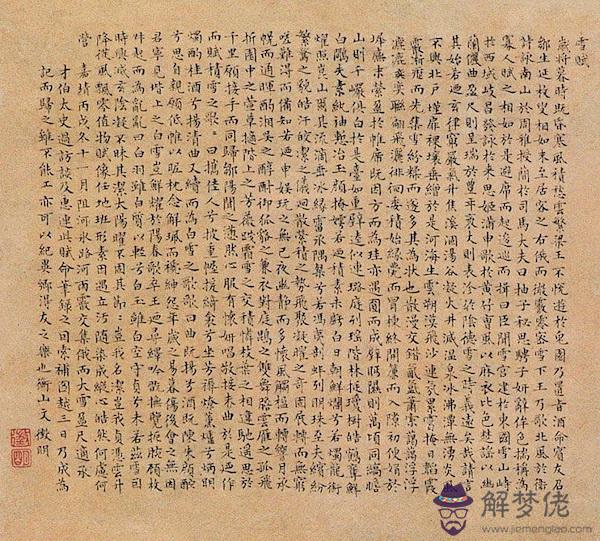 雪賦
歲將暮時既昏寒風積愁雲繁梁王不悅遊於兔園乃置旨酒命賓友召
鄒生延枚叟相如末至居客之右俄而微霰零密雪下王乃歌北風於衛
詩詠南山於周雅授簡於司馬大夫曰抽子秘思騁子妍辭侔色揣稱為
寡人賦之相如於是避席而起逡巡而揖曰臣聞雪宮建於東國雪山峙
於西域岐昌發詠於來思姬滿申歌於黃竹曹風以麻衣比色楚謠以幽
蘭儷曲盈尺則呈瑞於豐年袤丈則表沴於陰德雪之時義遠矣哉請言
其始若迺玄律窮嚴氣升焦溪涸湯谷凝火井滅溫泉冰沸潭無湧炎風
不興北戶墐扉裸壤垂繒於是河海生雲朔漠飛沙連氛累靄掩日韜霞
霰淅瀝而先集雪紛糅而遂多其為狀也散漫交錯氛氳蕭索藹藹浮浮
瀌瀌奕奕聯翩飛灑徘徊委積始緣甍而冒棟終開簾而入隙初便娟於
墀廡末縈盈於帷席既因方而為珪亦遇圓而成璧眄隰則萬頃同縞瞻
山則千巖俱白於是臺如重璧逵似連璐庭列瑤階林挺瓊樹皓鶴奪鮮
白鷴失素紈袖慙冶玉顏掩嫮若迺積素未虧白日朝鮮爛兮若燭龍銜
燿照崑山爾其流滴垂冰緣霤承隅粲兮若馮夷剖蚌列明珠至夫繽紛
繁騖之貌皓汗皦潔之儀迴散縈積之勢飛聚凝曜之奇固展轉而無窮
嗟難得而備知若迺申娛玩之無已夜幽靜而多懷風觸楹而轉響月承
幌而通暉酌湘吳之醇酎御狐貉之兼衣對庭鵾之雙舞瞻雲雁之孤飛
折園中之萱草擿階上之芳薇踐霜雪之交積憐枝葉之相違馳遙思於
千里願接手而同歸鄒陽聞之懣然心服有懷妍唱敬接末曲於是迺作
而賦積雪之歌歌曰攜佳人兮披重幄援綺衾兮坐芳褥燎薰爐兮炳明
燭酌桂酒兮揚清曲又續而為白雪之歌歌曰曲既揚兮酒既陳朱顏酡
兮思自親願低帷以昵枕念解珮而褫紳怨年歲之易暮傷後會之無因
君寧見階上之白雪豈鮮耀於陽春歌卒王迺尋繹吟翫撫覽扼腕顧枚
叔起而為亂亂曰白羽雖白質以輕兮白玉雖白空守貞兮未若茲雪因
時興滅玄陰凝不昧其潔太陽曜不固其節節豈我名潔豈我貞憑雲升
降從風飄零值物賦像任地班形素因遇立汚隨染成縱心皓然何慮何
營 嘉靖丙戌冬十一月阻河冰路河西霰交集俄而大雪盈尺適承
才伯太史過訪談及惠連此賦命筆錄之因索補圖越三日乃成為
記而歸之雖不能工亦可以紀異鄉得友之樂也衡山文徵明
解梦佬
www.jiemenglao.com